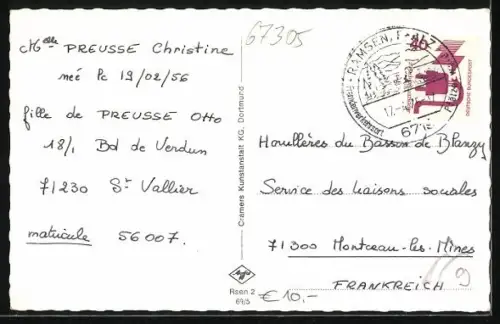 67305
Melle PREUSSE Christine
née le 19/02/56
fille de PREUSSE Otto
18/1 Bd de Verdun
71230 St Vallier
matricule 56007.
Cramers Kunstanstalt KG, Dortmund
RAMSEN, PFALZ
17.
6719
40
DEUTSCHE BUNDESPOST
Houillères du Bassin de Blanzy
Service des liaisons sociales
71300 Montceau-les-Mines
FRANKREICH
Agfa
Rsen 2
69/5
€10,-
9